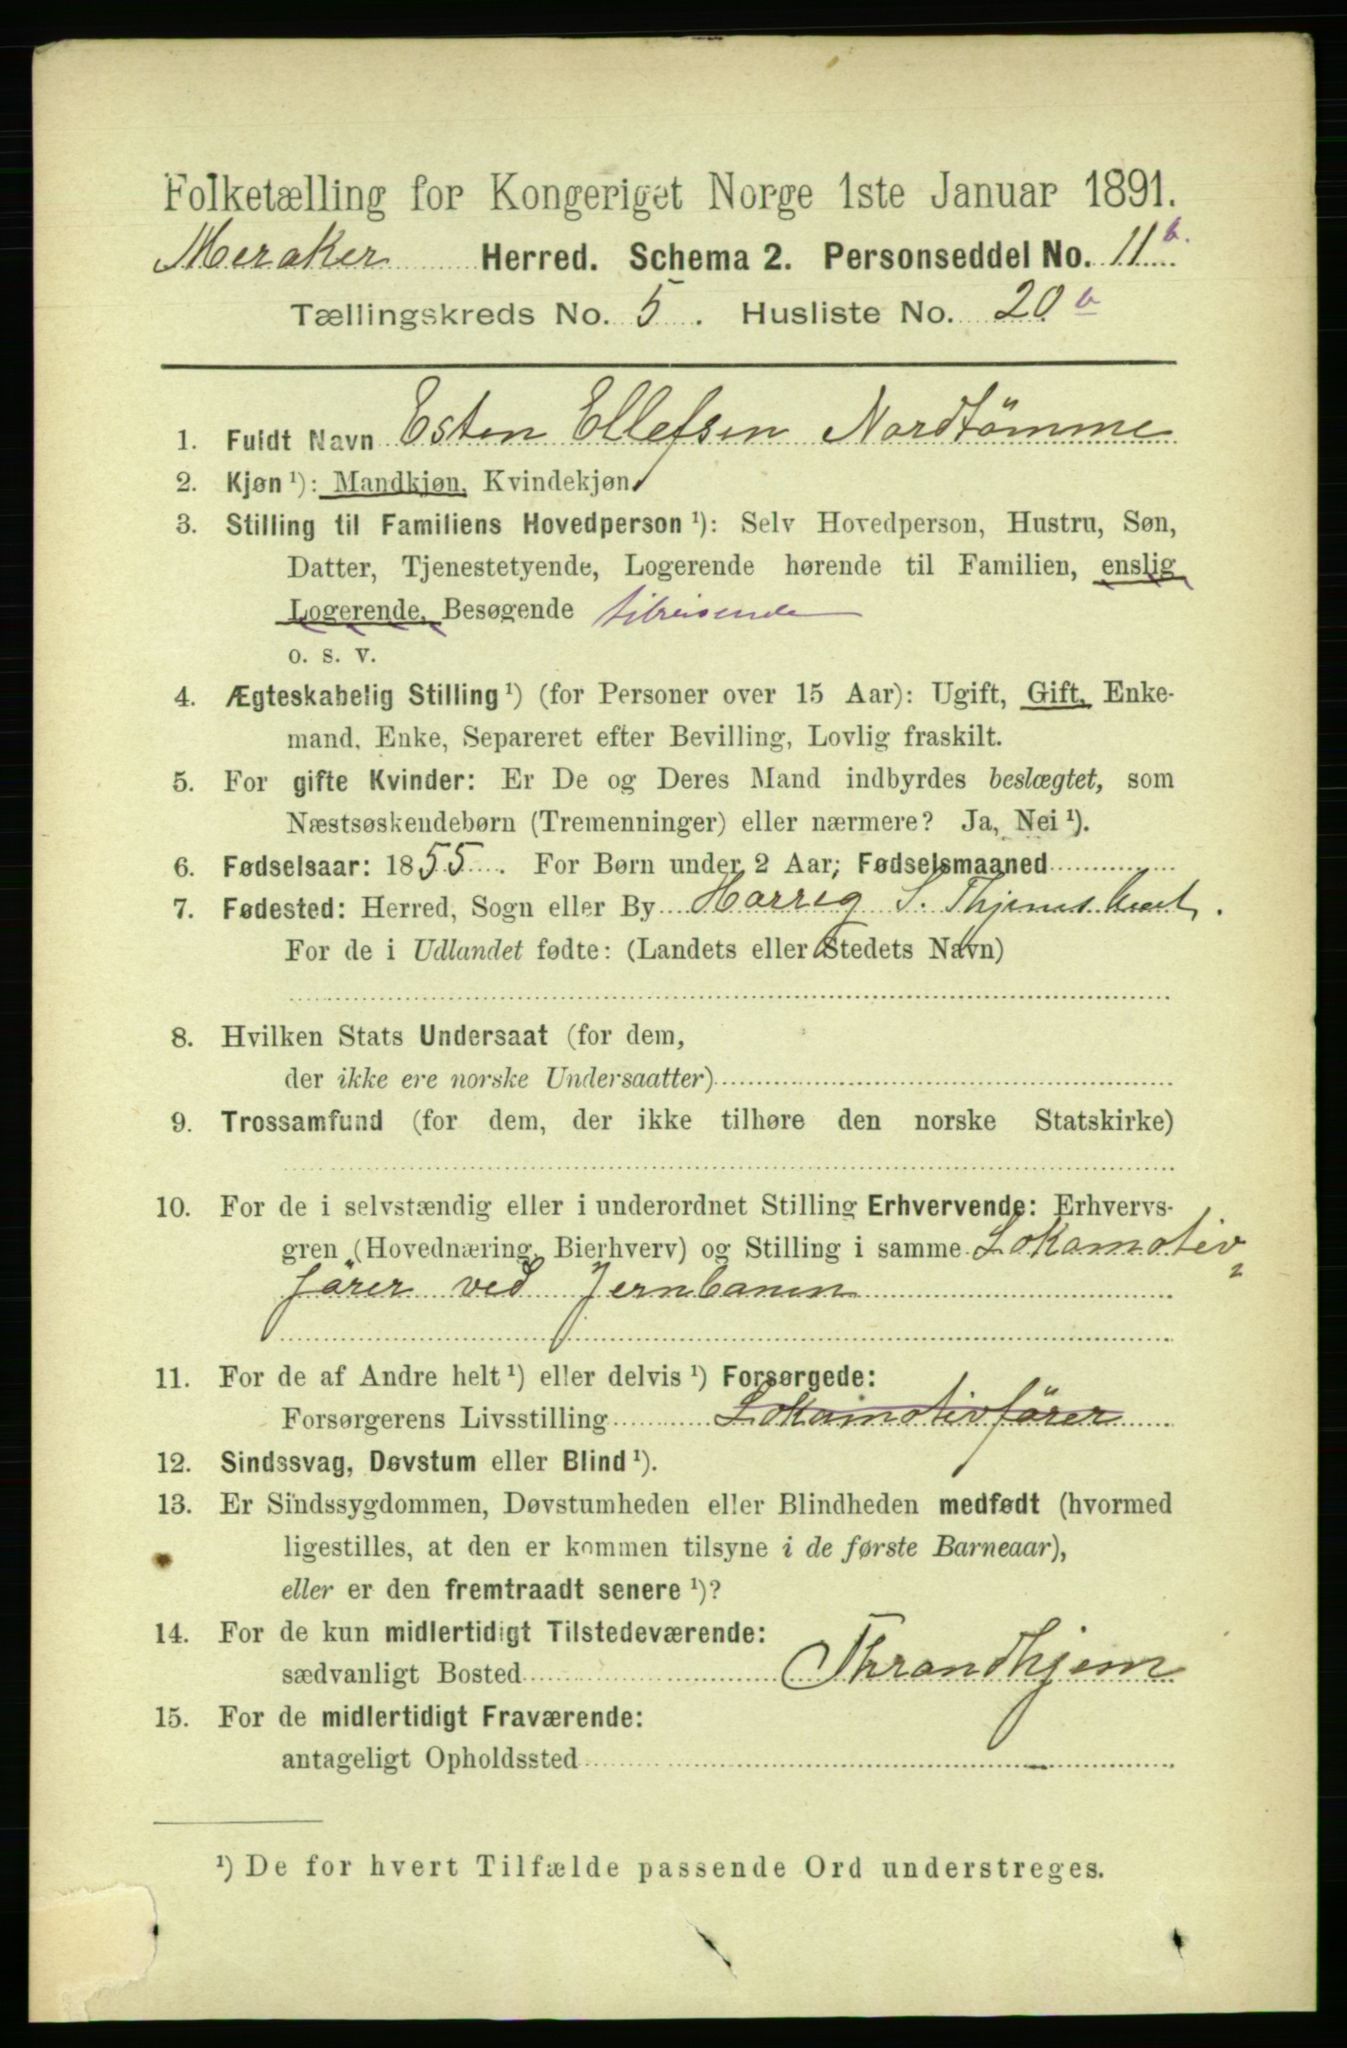 Folketælling for Kongeriget Norge 1ste Januar 1891.
Meraker Herred. Schema 2. Personseddel No. 11 b.
Tællingskreds No. 5. Husliste No. 20 b
1. Fuldt Navn Esten Ellefsen Nordtömme
2. Kjøn¹): Mandkjøn, Kvindekjøn
3. Stilling til Familiens Hovedperson¹): Selv Hovedperson, Hustru, Søn,
Datter, Tjenestetyende, Logerende hørende til Familien, enslig
Logerende, Besøgende tilreisende
o. s. v.
4. Ægteskabelig Stilling¹) (for Personer over 15 Aar): Ugift, Gift, Enke-
mand, Enke, Separeret efter Bevilling, Lovlig fraskilt.
5. For gifte Kvinder: Er De og Deres Mand indbyrdes beslægtet, som
Næstsøskendebørn (Tremenninger) eller nærmere? Ja, Nei¹).
6. Fødselsaar: 1855. For Børn under 2 Aar; Fødselsmaaned
7. Fødested: Herred, Sogn eller By S.
For de i Udlandet fødte: (Landets eller Stedets Navn)
8. Hvilken Stats Undersaat (for dem,
der ikke ere norske Undersaatter)
9. Trossamfund (for dem, der ikke tilhøre den norske Statskirke)
10. For de i selvstændig eller i underordnet Stilling Erhvervende: Erhvervs-
gren (Hovednæring, Bierhverv) og Stilling i samme Lokomotiv
förer ved Jernbanen
11. For de af Andre helt¹) eller delvis¹) Forsørgede:
Forsørgerens Livsstilling Lokomotivförer
12. Sindssvag, Døvstum eller Blind¹).
13. Er Sindssygdommen, Døvstumheden eller Blindheden medfødt (hvormed
ligestilles, at den er kommen tilsyne i de første Barneaar),
eller er den fremtraadt senere¹)?
14. For de kun midlertidigt Tilstedeværende:
sædvanligt Bosted Thrandhjem
15. For de midlertidigt Fraværende:
antageligt Opholdssted
¹) De for hvert Tilfælde passende Ord understreges.